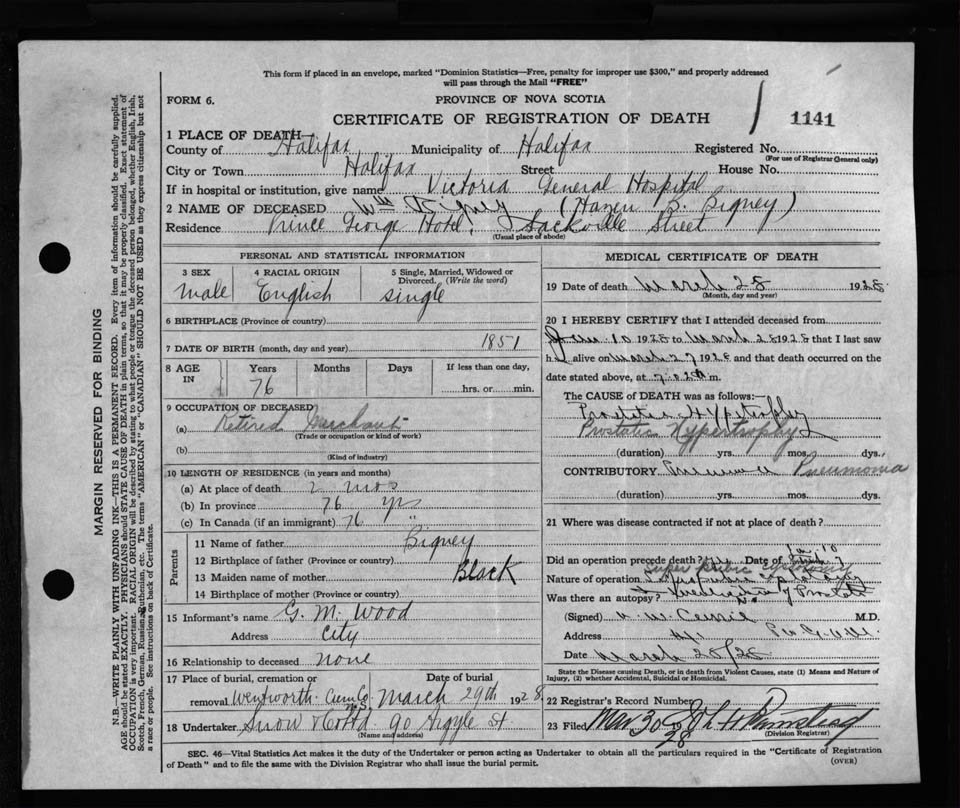 This form if placed in an envelope, marked "Dominion Statistics—Free, penalty for improper use $300," and properly addressed
will pass through the Mail "FREE"
FORM 6.
PROVINCE OF NOVA SCOTIA
CERTIFICATE OF REGISTRATION OF DEATH
1141
1 PLACE OF DEATH—
County of Halifax Municipality of Halifax Registered No.
(For use of Registrar General only)
City or Town Halifax Street House No.
If in hospital or institution, give name Victoria General Hospital
2 NAME OF DECEASED Wm Bigney (Hazen B. Bigney)
Residence Prince George Hotel. Sackville Street
(Usual place of abode)
PERSONAL AND STATISTICAL INFORMATION
3 SEX male
4 RACIAL ORIGIN English
5 Single, Married, Widowed or Divorced. (Write the word) single
6 BIRTHPLACE (Province or country)
7 DATE OF BIRTH (month, day and year) 1851
8 AGE IN Years 76 Months Days If less than one day, hrs. or min.
9 OCCUPATION OF DECEASED
(a) Retired Merchant
(Trade or occupation or kind of work)
(b)
(Kind of industry)
10 LENGTH OF RESIDENCE (in years and months)
(a) At place of death 2 mos
(b) In province 76 yrs
(c) In Canada (if an immigrant) 76 "
Parents
11 Name of father Bigney
12 Birthplace of father (Province or country)
13 Maiden name of mother Black
14 Birthplace of mother (Province or country)
15 Informant's name G. M. Wood
Address City
16 Relationship to deceased none
17 Place of burial, cremation or removal Wentworth Cum Co. N.S. Date of burial March 29th 1928
18 Undertaker Snow & Co Ltd 90 Argyle St
(Name and address)
MEDICAL CERTIFICATE OF DEATH
19 Date of death March 28 1928
(Month, day and year)
20 I HEREBY CERTIFY that I attended deceased from
10 1928 to March 28 1928 that I last saw
h alive on March 27 1928 and that death occurred on the
date stated above, at m.
The CAUSE OF DEATH was as follows:
Prostatic Hypertrophy
Prostatic Hypertrophy
(duration) yrs. mos. dys.
CONTRIBUTORY Pneumonia
(duration) yrs. mos. dys.
21 Where was disease contracted if not at place of death?
Did an operation precede death? Date of
Nature of operation Super pubic cystotomy
Was there an autopsy?
(Signed) M.D.
Address
Date March 28/28
State the Disease causing Death, or in death from Violent Causes, state (1) Means and Nature of
Injury, (2) whether Accidental, Suicidal or Homicidal.
22 Registrar's Record Number
23 Filed Mar 30 1928
(Division Registrar)
SEC. 46—Vital Statistics Act makes it the duty of the Undertaker or person acting as Undertaker to obtain all the particulars required in the "Certificate of Registration
of Death" and to file the same with the Division Registrar who shall issue the burial permit.
(OVER)
MARGIN RESERVED FOR BINDING
N.B.—WRITE PLAINLY WITH UNFADING INK—THIS IS A PERMANENT RECORD. Every item of information should be carefully supplied.
AGE should be stated EXACTLY. PHYSICIANS should STATE CAUSE OF DEATH in plain terms, so that it may be properly classified. Exact statement of
OCCUPATION is very important. RACIAL ORIGIN will be described by stating to what people or tongue the deceased person belonged, whether English, Irish,
Scotch, French, German, Russian, Ruthenian, etc. The terms "AMERICAN" or "CANADIAN" SHOULD NOT BE USED as they express citizenship but not
a race or people. See instructions on back of Certificate.